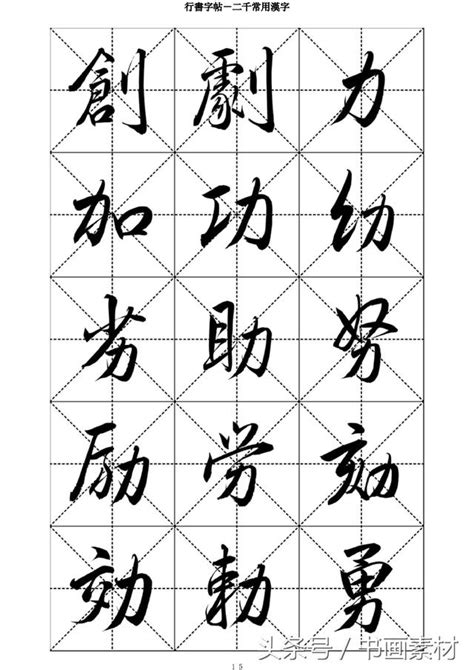 行書字帖－二千常用漢字
創劇力
加功幼
劣助努
励労劾
効勅勇
头条号 / 书画素材
15